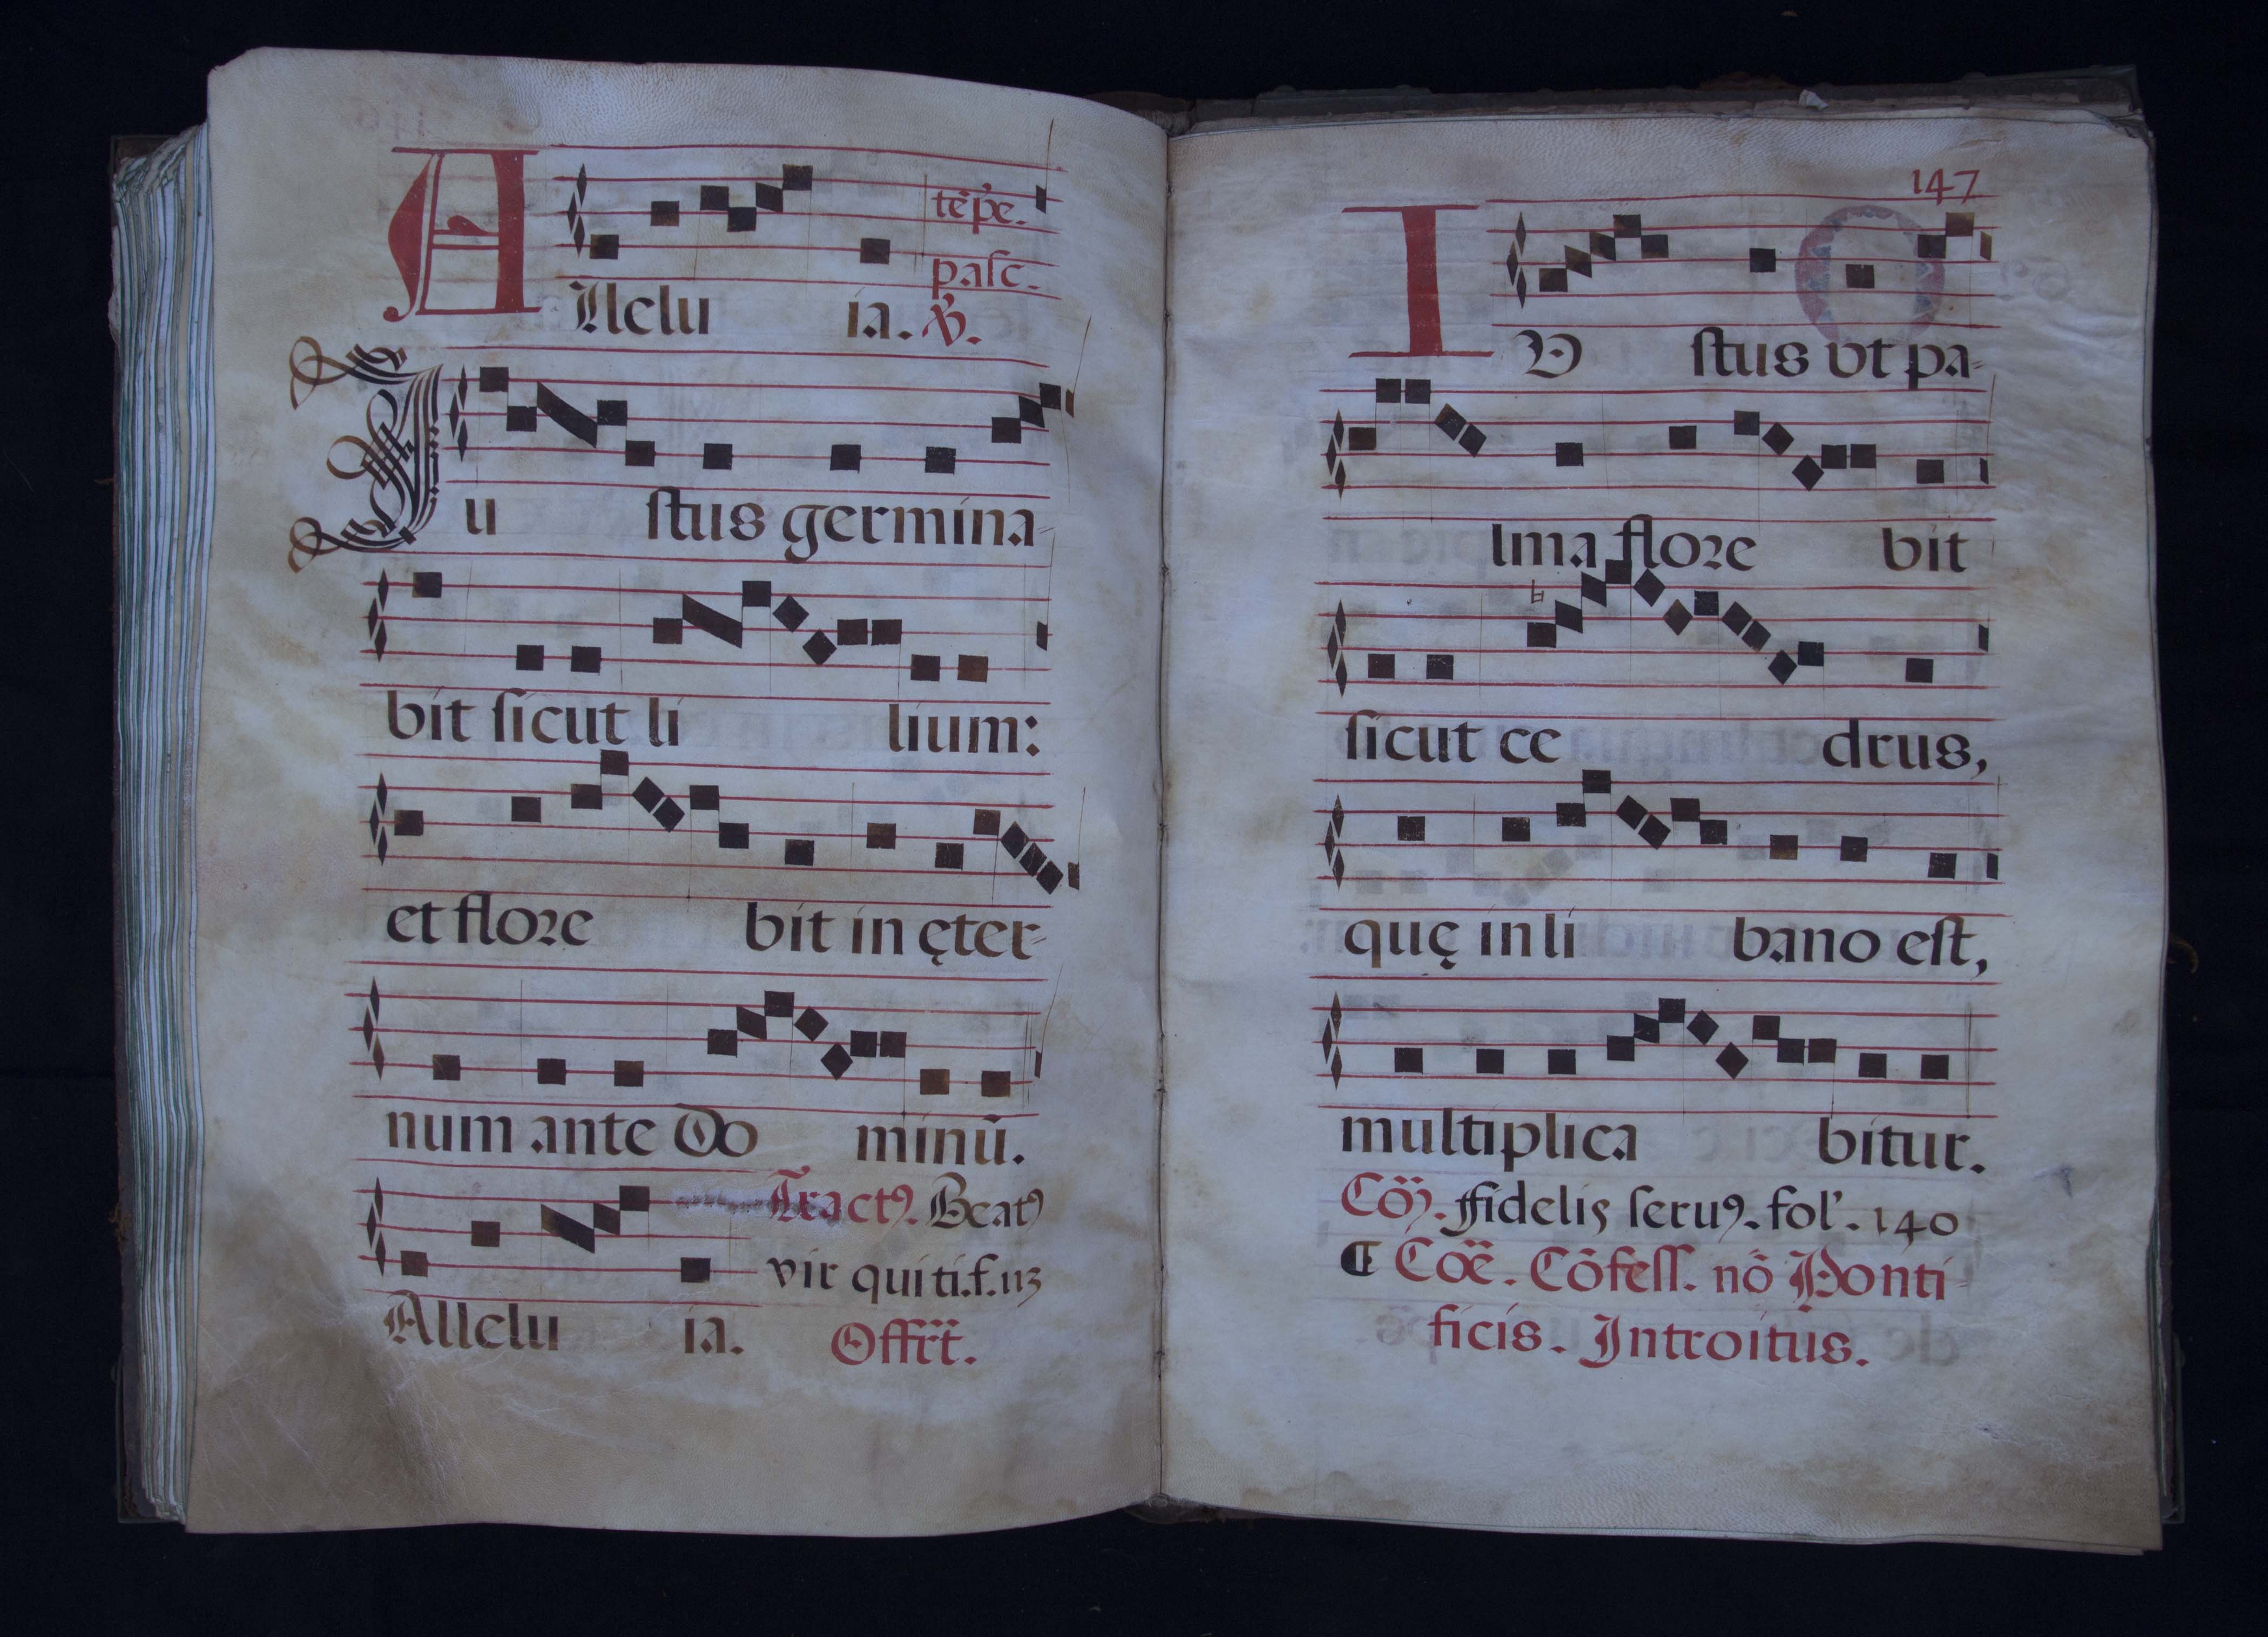 tẽp̃e.
pasc.
Allelu ia. ℣.
Iu ſtus germina-
bit ſicut li lium:
et flore bit in ęter-
num ante Do minũ.
Tractꝰ. Beatꝰ
vir qui ti. f. 113
Allelu ia. Offrt̃.
147
IV ſtus vt pa-
lma flore bit
ſicut ce drus,
quę in li bano eſt,
multiplica bitur.
Cõ. fidelis ſeruꝰ. fol'. 140
¶ Cõẽ. Cõfeſſ. nõ Ponti
ficis. Introitus.